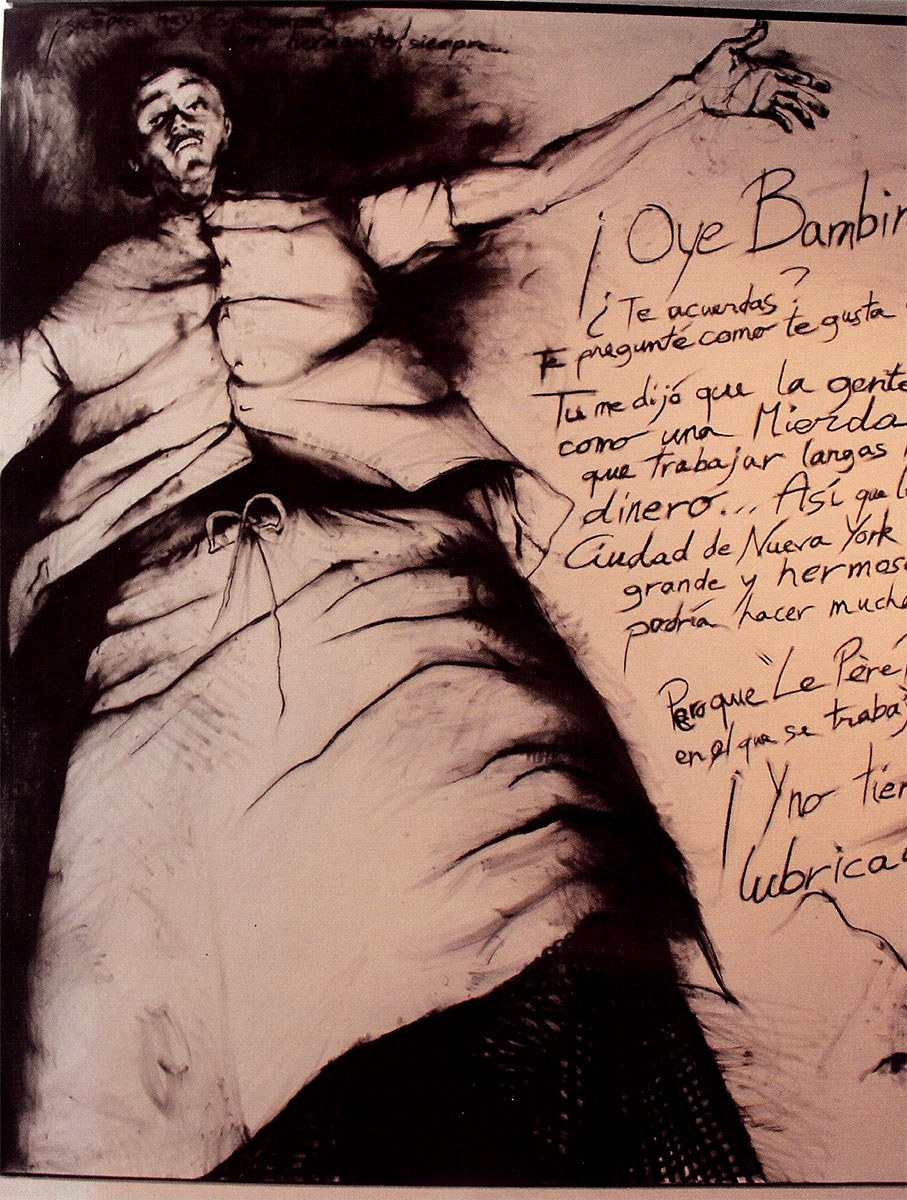 ¡siempre hay esperanza
hermanito, siempre...
¡Oye Bambin
¿Te acuerdas?
Te pregunté como te gusta
Tu me dijó que la gente
como una Mierda
que trabajar largas
dinero... Así que l
Ciudad de Nueva York
grande y hermos
podría hacer mucha
Pero que "Le Père"
en el que se traba
¡Y no tien
lubrica